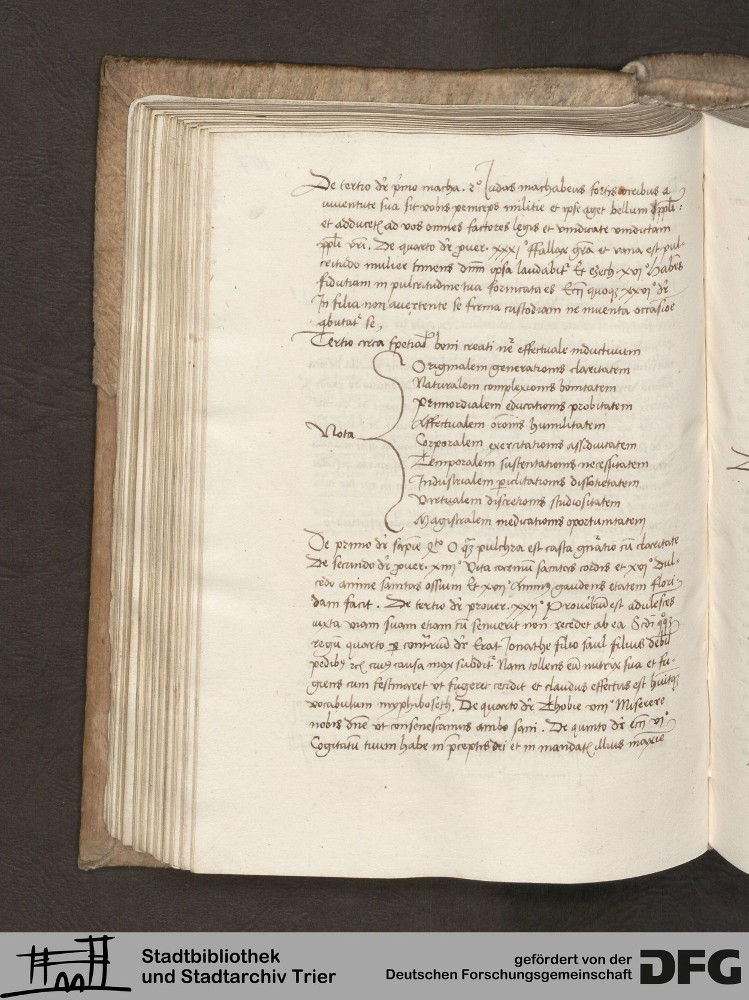 De tertio dr̄ p̄mo macha. 2º Judas machabeus fortis viribus a
iuventute sua sit vobis princeps militie et ipse aget bellum ppli:
et adducet ad vos omnes factores legis et vindicate vindictam
ppli vr̄i. De quarto dr̄ prouer. xxxiº ffallax gr̄a et vana est pul-
critudo mulier timens dnm̄ ipsa laudabit᷑ Et ezech. xvi. Habēs
fidutiam in pulcritudine tua fornicata es Ecci quoqꝫ xxviº dr̄
In filia non auertente se firma custodiam ne inuenta occasioe
abutat᷑ se,
Tertio circa boni creati effectuale inductiuum
Originalem generationis claritatem
Naturalem complexionis bonitatem
Primordialem educationis probitatem
Affectualem oronis humilitatem
Nota Corporalem exercitationis assiduitatem
Temporalem sustentationis necessitatem
Industrialem
Virtualem discretionis studiositatem
Magistralem medicationis oportunitatem
De primo dr̄ sapie 4to O qꝫ pulchra est casta gn̄atio cū claritate
De secundo dr̄ prouer. xiiiiº Vita carnium sanitas cordis et xviº Dul-
cedo anime sanitas ossium Et xviiº Animus gaudens etatem flori-
dam facit. De tertio dr̄ prouer. xxiiº Prouerbiū est adulescēs
iuxta viam suam etiam cū senuerit non recedet ab ea
regū quarto p contrariū dr̄ Erat Jonathe filio saul filius debil
pedibꝫ cuiꝫ causa mox subdit᷑ Nam tollens eū nutrix sua et fu-
giens cum festinaret vt fugeret cecidit et claudus effectus est huitqꝫ
vocabulum myphiboseth. De quarto dr̄ Thobie viiiº Miserere
nobis dne vt consenescamus ambo sani. De quinto dr̄ Ecci viº
Cogitatū tuum habe in p̄ceptis dei et in mandatis illius maxie
Stadtbibliothek
und Stadtarchiv Trier
gefördert von der
Deutschen Forschungsgemeinschaft
DFG